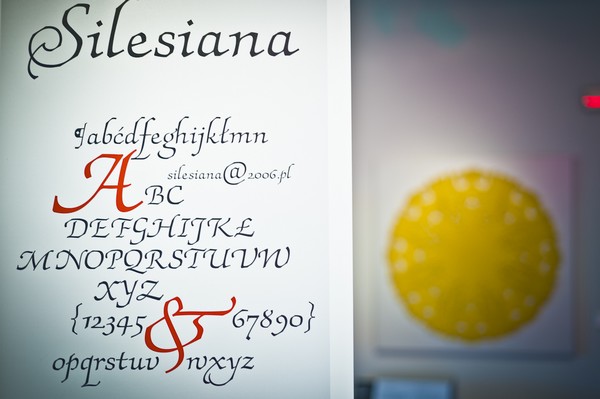 Silesiana
¶abćdfeghijkłmn
silesiana@2006.pl
ABC
DEFGHIJKŁ
MNOPQRSTUVW
XYZ
{12345&67890}
opqrstuvwxyz